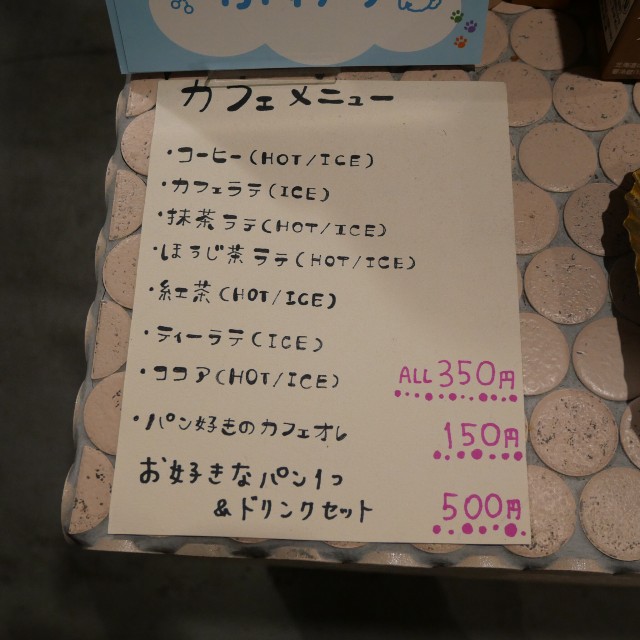 カフェメニュー
・コーヒー(HOT/ICE)
・カフェラテ(ICE)
・抹茶ラテ(HOT/ICE)
・ほうじ茶ラテ(HOT/ICE)
・紅茶(HOT/ICE)
・ティーラテ(ICE)
・ココア(HOT/ICE) ALL350円
・パン好きのカフェオレ 150円
お好きなパン1つ
&ドリンクセット 500円